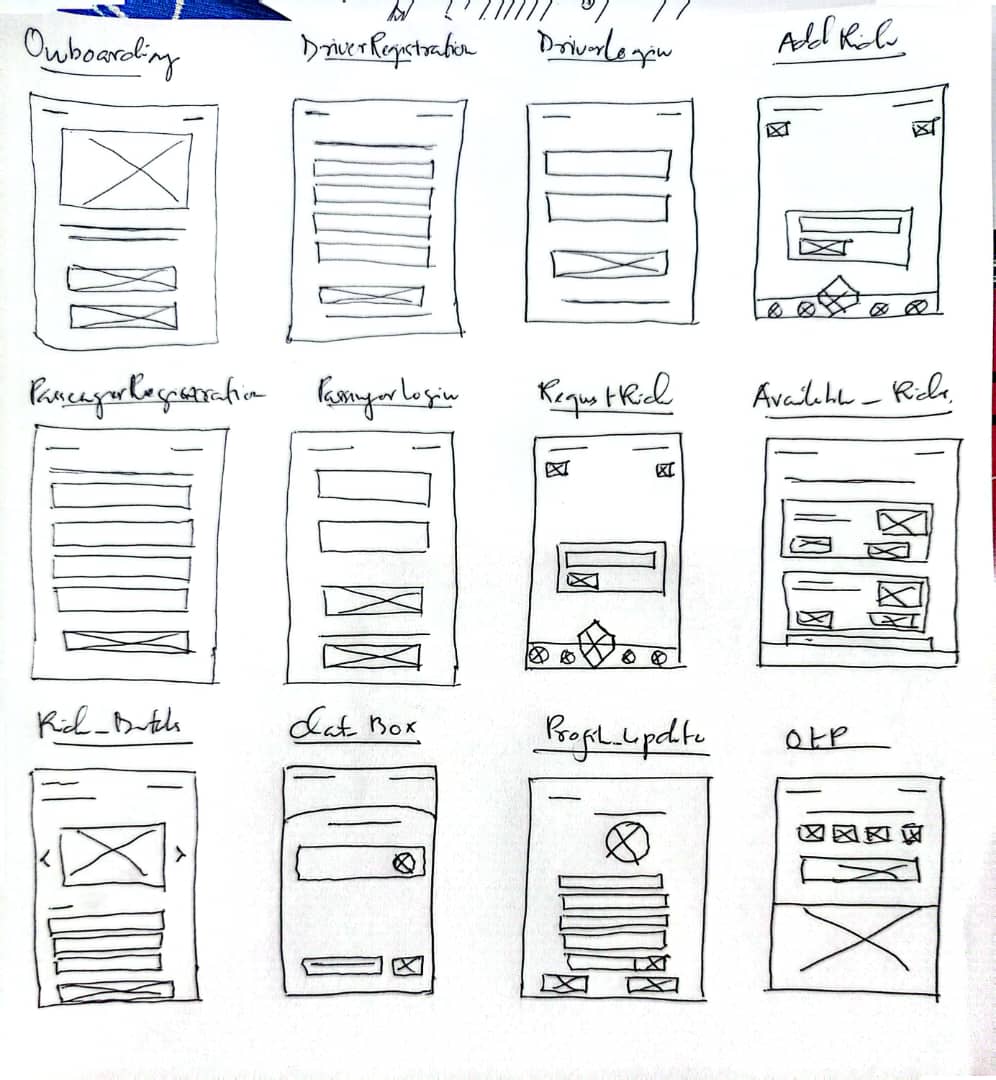 Onboarding
DriverRegistration
DriverLogin
Add Ride
PassengerRegistration
PassengerLogin
Request Ride
Available_Rides
Ride_Details
Chat Box
Profile_Update
OTP